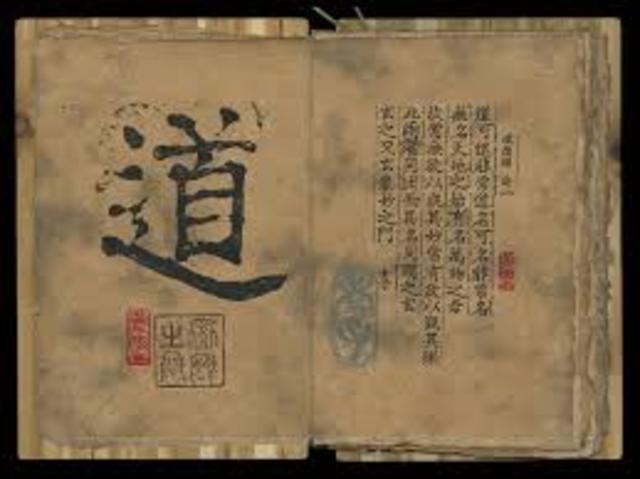 道德經
道可道非常道名可名非常名
無名天地之始有名萬物之母
故常無欲以觀其妙常有欲以觀其徼
此兩者同出而異名同謂之玄
玄之又玄眾妙之門
道